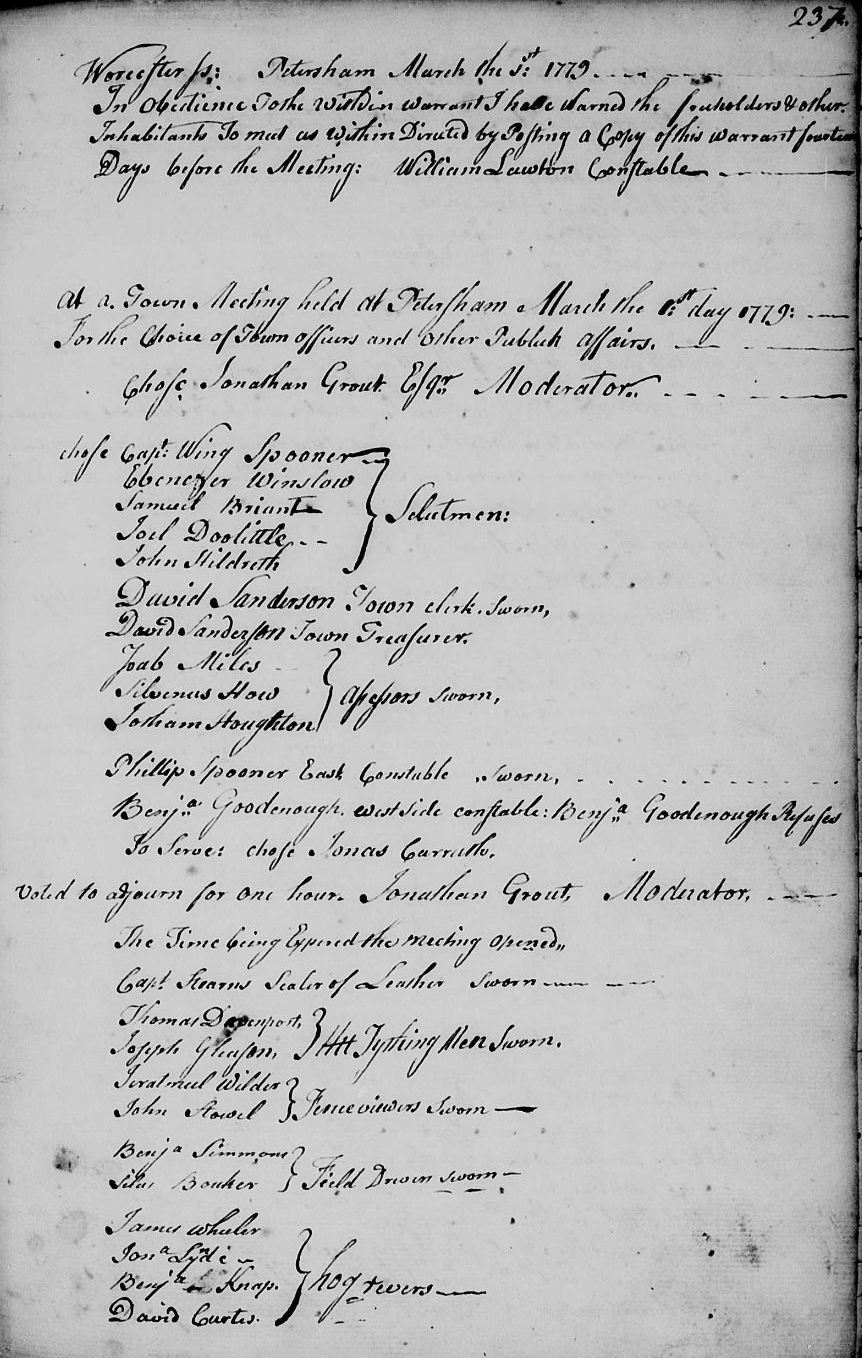 237.
Worcester ss: Petersham March the 1st: 1779.
In Obedience To the Within warrant I have warned the freeholders & other
Inhabitants To meet as Within Directed by Posting a Copy of this warrant fourteen
Days before the Meeting: William Lawton Constable
At a Town Meeting held at Petersham March the 1:st day 1779:
For the Choice of Town officers and other Publick affairs.
Chose Jonathan Grout Esqr. Moderator.
chose Capt: Wing Spooner
Ebenezer Winslow
Samuel Briant
Joel Doolittle
John Hildreth
Selectmen:
David Sanderson Town clerk. sworn,
David Sanderson Town Treasurer.
Joab Miles
Silvenus How
Jotham Houghton
Assessors sworn,
Phillip Spooner East Constable sworn,
Benja Goodenough. west side constable: Benja Goodenough Refuses
To Serve: chose Jonas Carruth.
Voted to adjourn for one hour. Jonathan Grout, Moderator,
The Time being Expired the meeting opened,,
Capt Stearns Sealer of Leather sworn
Thomas Davenport,
Joseph Gleason,
Tything Men Sworn.
Jeratmeel Wilder
John Stowel
Fence viewers sworn
Benja Simmons
Silas Bouker
Field Drivers sworn
James Wheler
Jona Lyde
Benja Knap.
David Curtis.
hog revers